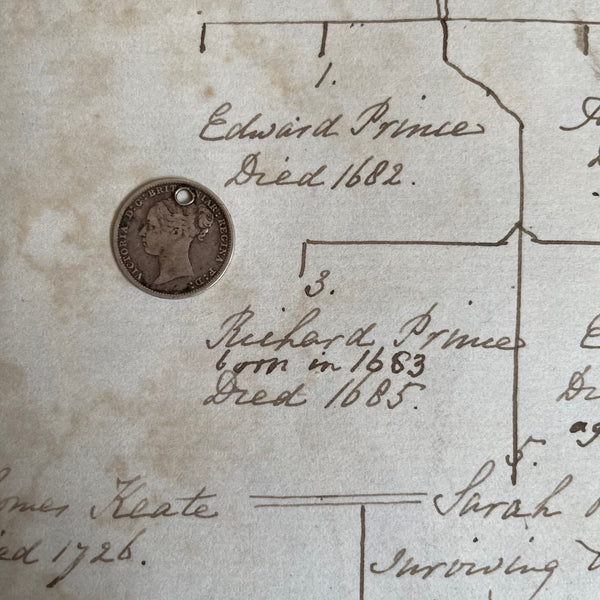 1.
Edward Prince
Died 1682.
VICTORIA D:G: BRIT: REGINA F:D:
3.
Richard Prince
born in 1683
Died 1685.
5.
Keate
Sarah
1726.
surviving